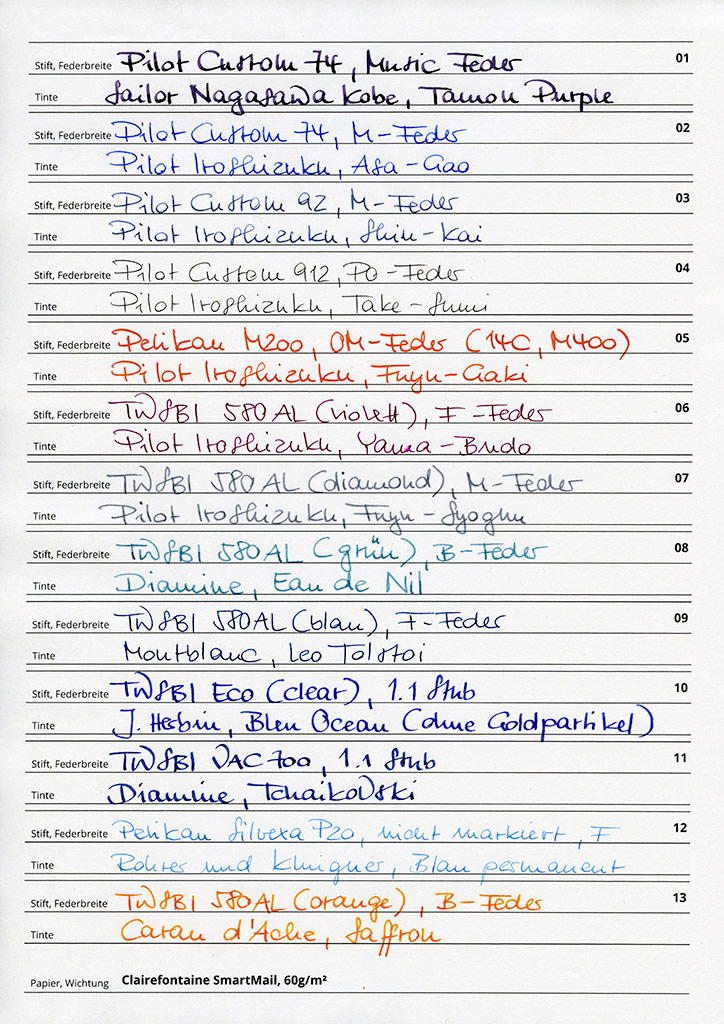 Stift, Federbreite Pilot Custom 74, Music Feder 01
Tinte Sailor Nagasawa Kobe, Tamon Purple
Stift, Federbreite Pilot Custom 74, M-Feder 02
Tinte Pilot Iroshizuku, Asa-Gao
Stift, Federbreite Pilot Custom 92, M-Feder 03
Tinte Pilot Iroshizuku, Shin-Kai
Stift, Federbreite Pilot Custom 912, PO-Feder 04
Tinte Pilot Iroshizuku, Take-Sumi
Stift, Federbreite Pelikan M200, OM-Feder (14C, M400) 05
Tinte Pilot Iroshizuku, Fuyu-Gaki
Stift, Federbreite TWSBI 580 AL (violett), F-Feder 06
Tinte Pilot Iroshizuku, Yama-Budo
Stift, Federbreite TWSBI 580 AL (diamond), M-Feder 07
Tinte Pilot Iroshizuku, Fuyu-Syogun
Stift, Federbreite TWSBI 580AL (grün), B-Feder 08
Tinte Diamine, Eau de Nil
Stift, Federbreite TWSBI 580AL (blau), F-Feder 09
Tinte Montblanc, Leo Tolstoi
Stift, Federbreite TWSBI Eco (clear), 1.1 Stub 10
Tinte J. Herbin, Bleu Ocean (ohne Goldpartikel)
Stift, Federbreite TWSBI VAC 700, 1.1 Stub 11
Tinte Diamine, Tchaikovski
Stift, Federbreite Pelikan Silvexa P20, nicht markiert, F 12
Tinte Rohrer und Klingner, Blau permanent
Stift, Federbreite TWSBI 580AL (orange), B-Feder 13
Tinte Caran d'Ache, Saffron
Papier, Wichtung Clairefontaine SmartMail, 60g/m²